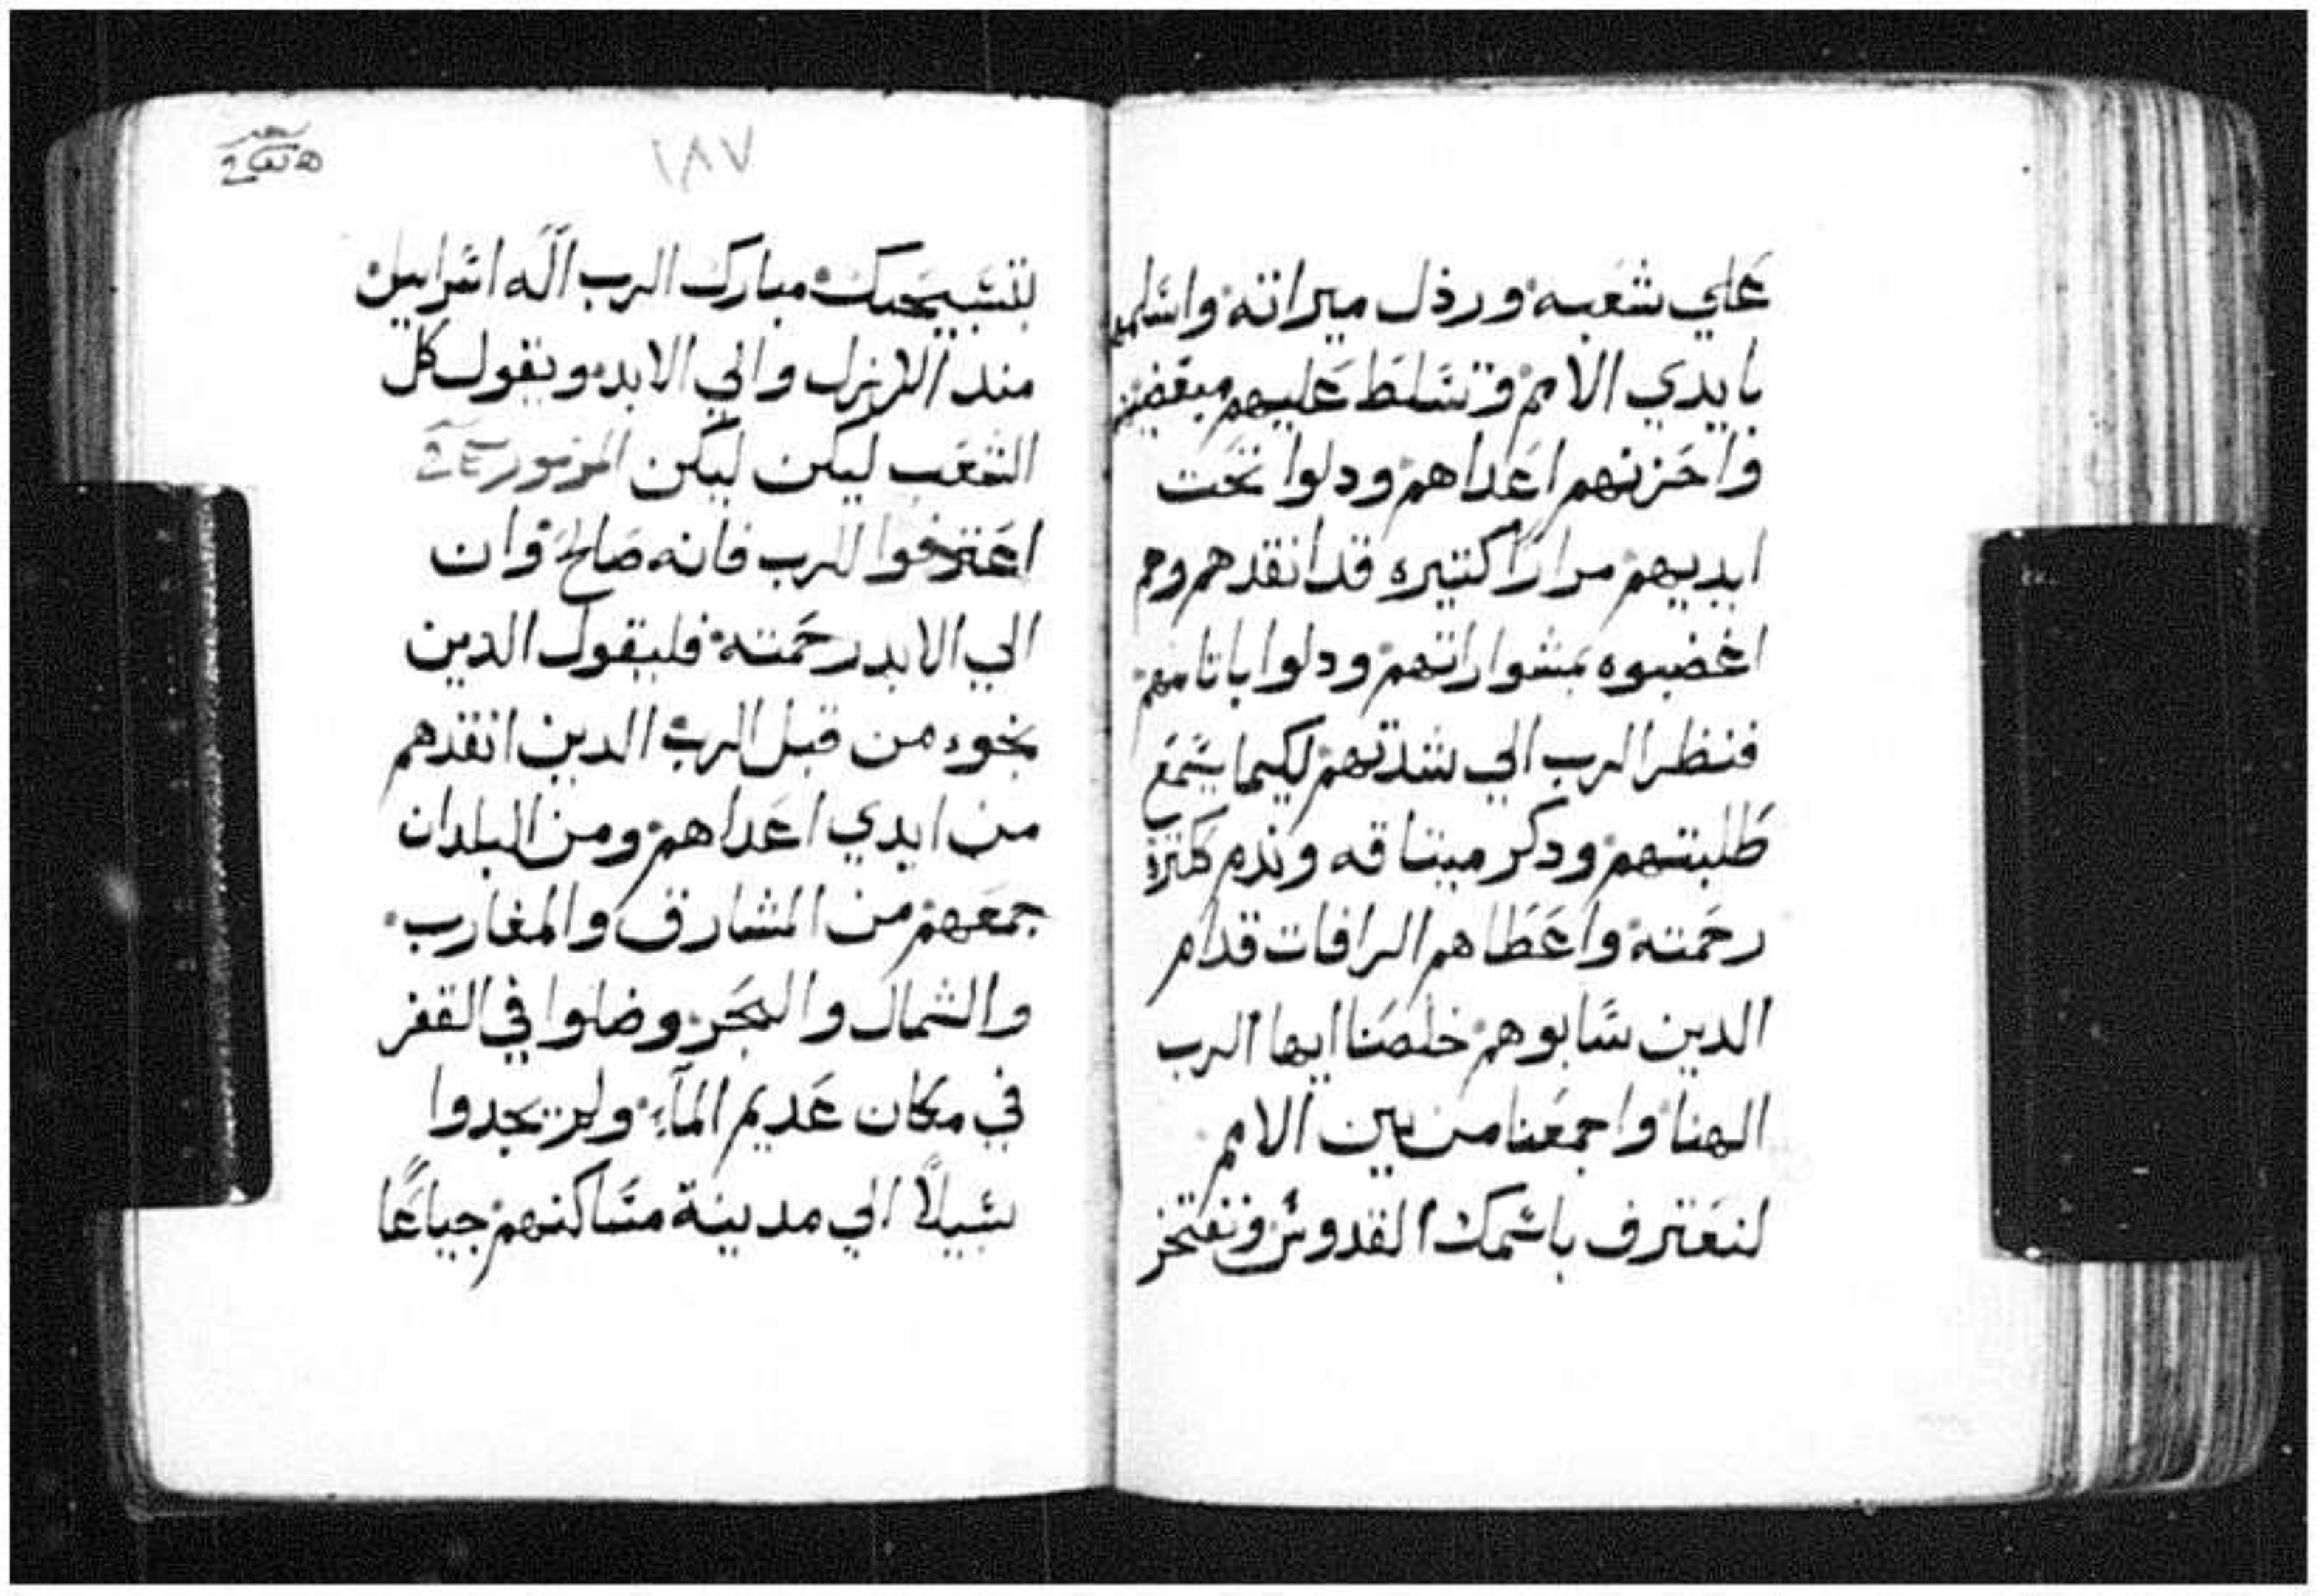 علي شعبه ورذل ميراثه واسلمهم
بايدي الامم وتسلط عليهم مبغضيهم
واحزنهم اعداهم ودلوا تحت
ايديهم مرارًا كتيره قد انقدهم وهم
اغضبوه بمشوراتهم ودلوا باتامهم
فنظر الرب الي شدتهم لكيما يسمع
طلبتهم ودكر ميتاقه وندم ككترة
رحمته واعطاهم الرافات قدام
الدين سابوهم خلصنا ايها الرب
الهنا واجمعنا من بين الامم
لنعترف باسمك القدوس ونفتخر
١٨٧
بتسبيحتك مبارك الرب اله اسراييل
مند الازل والي الابد ويقول كل
الشعب ليكن ليكن المزمور
اعترفوا للرب فانه صالح وان
الي الابد رحمته فليقول الدين
نجوا من قبل الرب الدين انقدهم
من ايدي اعداهم ومن البلدان
جمعهم من المشارق والمغارب
والشمال والبحر وضلوا في القفر
في مكان عديم المآء ولم يجدوا
سبيلًا الي مدينة مساكنهم جياعًا